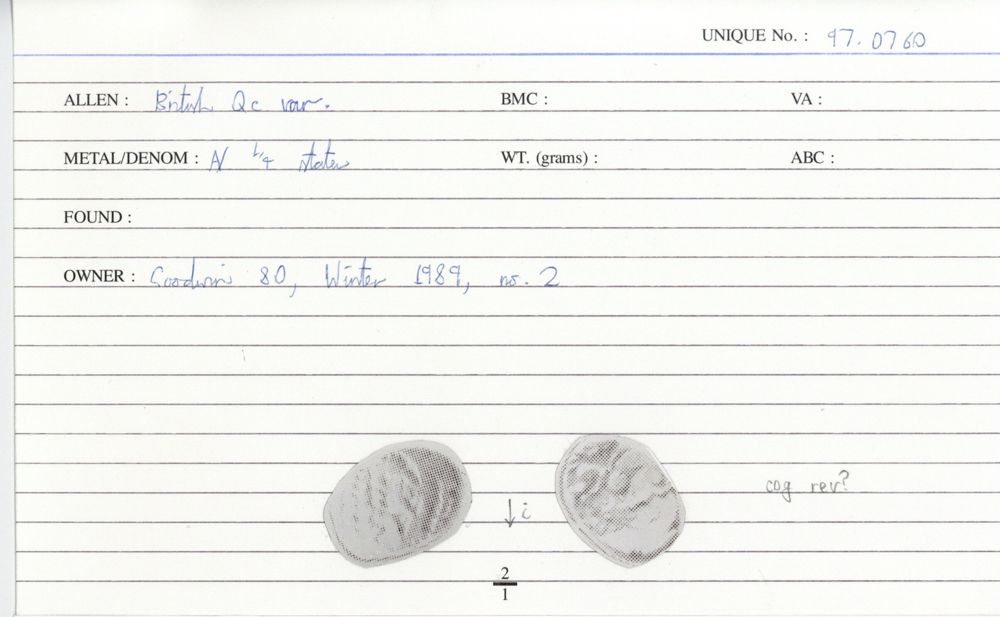 UNIQUE No. : 97.0760
ALLEN : British Qc var. BMC : VA :
METAL/DENOM : N 1/4 stater WT. (grams) : ABC :
FOUND :
OWNER : Goodwin 80, Winter 1989, no. 2
cog rev?
↓ i
2
1